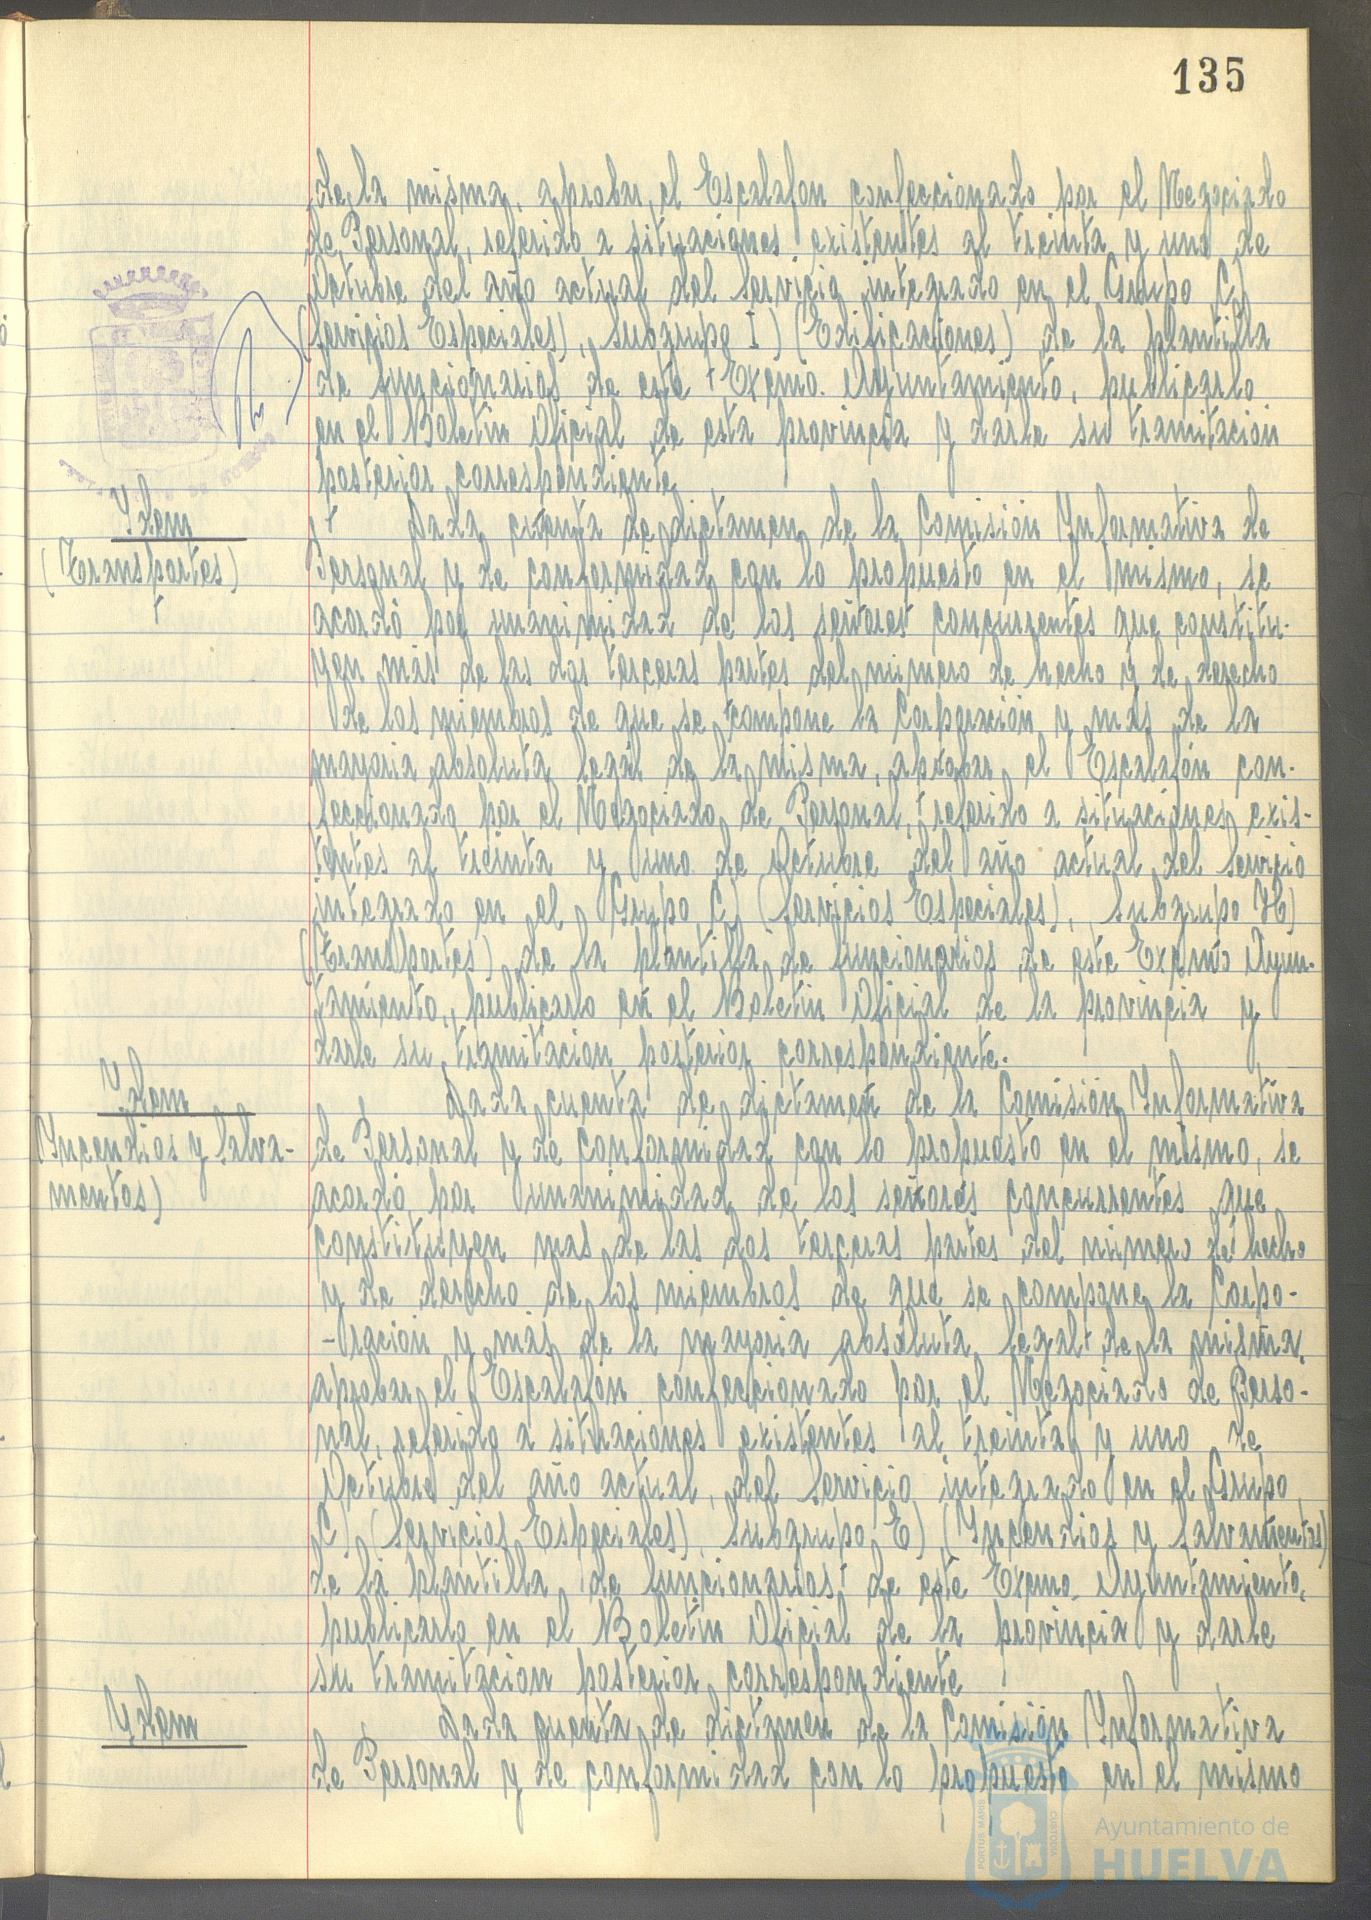 135
de la misma, aprobar el Escalafon confeccionado por el Negociado
de Personal, referido a situaciones existentes al treinta y uno de
Octubre del año actual del Servicio integrado en el Grupo C)
(Servicios Especiales), Subgrupo I) (Edificaciones) de la plantilla
de funcionarios de este Excmo. Ayuntamiento, publicarlo
en el Boletin Oficial de esta provincia y darle su tramitación
posterior correspondiente
Ydem
(Transportes)
Dada cuenta de dictamen de la Comisión Informativa de
Personal y de conformidad con lo propuesto en el mismo, se
acordó por unanimidad de los señores concurrentes que constitu-
yen más de las dos terceras partes del número de hecho y de derecho
de los miembros de que se compone la Corporación y más de la
mayoria absoluta legal de la misma, aprobar el Escalafón con-
feccionado por el Negociado de Personal, referido a situaciones exis-
tentes al treinta y uno de Octubre del año actual del Servicio
integrado en el Grupo C) (Servicios Especiales), Subgrupo H)
(Transportes) de la plantilla de funcionarios de este Excmo Ayun-
tamiento, publicarlo en el Boletin Oficial de la provincia y
darle su tramitacion posterior correspondiente.
Ydem
Yncendios y Salva-
mentos)
Dada cuenta de dictamen de la Comisión Informativa
de Personal y de conformidad con lo propuesto en el mismo, se
acordó por unanimidad de los señores concurrentes que
constituyen mas de las dos terceras partes del número de hecho
y de derecho de los miembros de que se compone la Corpo-
-ración y más de la mayoria absoluta legal de la misma,
aprobar el Escalafon confeccionado por el Negociado de Perso-
nal, referido a situaciones existentes al treinta y uno de
Octubre del año actual, del Servicio integrado en el Grupo
C) (Servicios Especiales), Subgrupo E) (Yncendios y Salvamentos)
de la plantilla de funcionarios de este Excmo. Ayuntamiento,
publicarlo en el Boletin Oficial de la provincia y darle
su tramitacion posterior correspondiente
Ydem
Dada cuenta de dictamen de la Comisión Informativa
de Personal y de conformidad con lo propuesto en el mismo
PORTUS MARIS
CUSTODIA
Ayuntamiento de
HUELVA